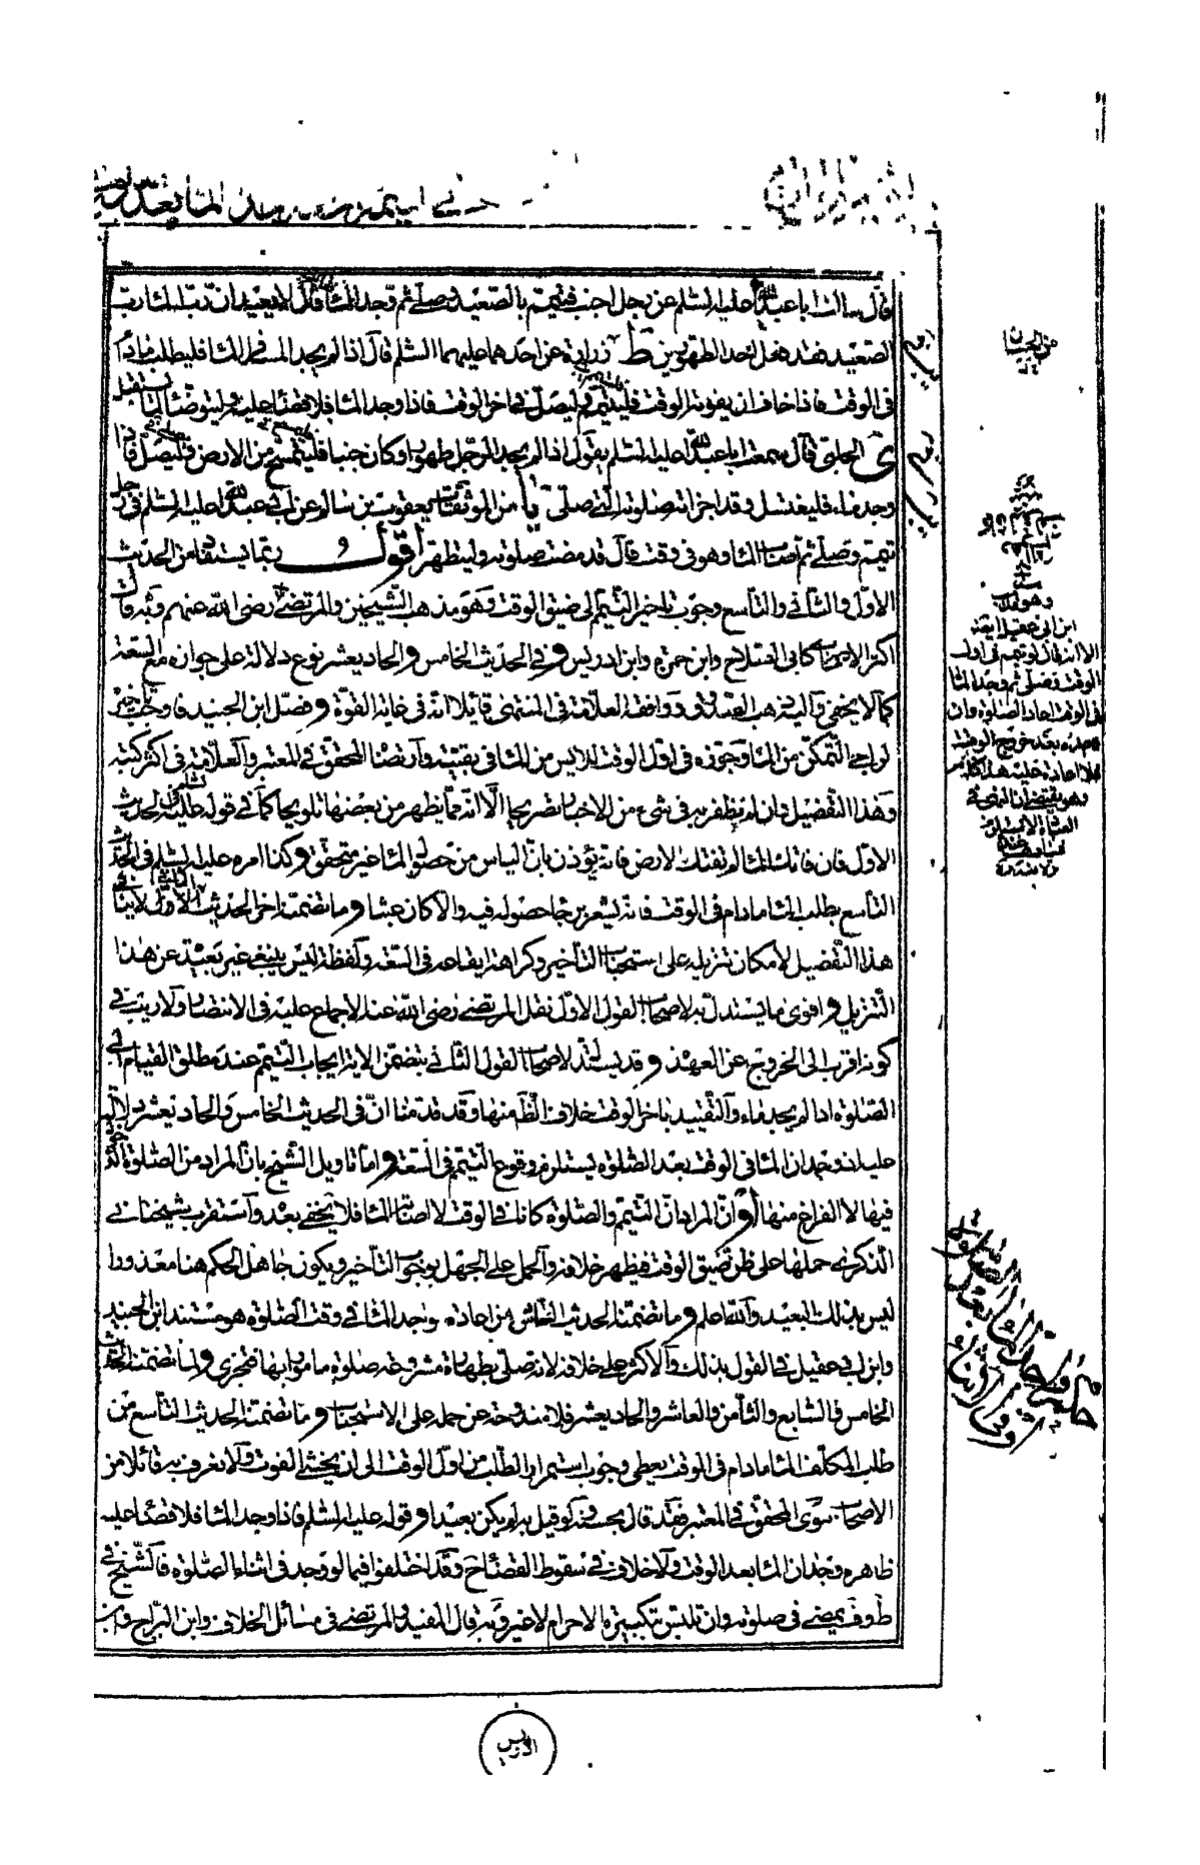 قال سالت ابا عبد الله عليه السلم عن رجل اجنب فتيمم بالصعيد وصلى ثم وجد الماء فقال لا يعيد ان رب الماء رب
الصعيد فقد فعل احد الطهورين ط زرارة عن احدهما عليهما السلم قال اذا لم يجد المسافر الماء فليطلب مادام
في الوقت فاذا خاف ان يفوته الوقت فليتيمم وليصل في اخر الوقت فاذا وجد الماء فلا قضاء عليه وليتوضا لما يستقبل
ى الحلبي قال سمعت ابا عبد الله عليه السلم يقول اذا لم يجد الرجل طهورا وكان جنبا فليمسح من الارض وليصل فاذا
وجد ماء فليغتسل وقد اجزاته صلوته التي صلى يا من الموثقات يعقوب بن سالم عن ابي عبد الله عليه السلم في رجل
تيمم وصلى ثم اصاب الماء وهو في وقت قال قد مضت صلوته وليتطهر اقول وربما يستفاد من الحديث
الاول والثاني والتاسع وجوب تاخير التيمم الى ضيق الوقت وهو مذهب الشيخين والمرتضى رضي الله عنهم وبه قال
اكثر الاصحاب كابي الصلاح وابن حمزه وابن ادريس وفي الحديث الخامس والحادي عشر نوع دلالة على جوازه مع السعة
كما لا يخفى واليه ذهب الصدوق ووافقه العلامة في المنتهى قائلا انه في غاية القوة وفصل ابن الجنيد فاوجب التاخير
لراجي التمكن من الماء وجوزه في اول الوقت للايس من الماء في بقيته وارتضاه المحقق في المعتبر والعلامة في اكثر كتبه
وهذا التفصيل وان لم نظفر به في شيء من الاخبار تصريحا الا انه مما يظهر من بعضها تلويحا كما في قوله عليه السلم في الحديث
الاول فان فاتك الماء لم تفتك الارض فانه يؤذن بان الياس من حصول الماء غير متحقق وكذا امره عليه السلم في الحديث
التاسع بطلب الماء مادام في الوقت فانه يشعر برجاء حصوله فيه والا كان عبثا وما تضمنه اخر الحديث الاول لا ينافي
هذا التفصيل لامكان تنزيله على استحباب التاخير وكراهة ايقاعه في السعة ولفظة ليس ينبغي غير بعيدة عن هذا
التنزيل واقوى ما يستدل به لاصحاب القول الاول نقل المرتضى رضي الله عنه الاجماع عليه في الانتصار ولا ريب في
كونه اقرب الى الخروج عن العهدة وقد يستدل لاصحاب القول الثاني بتضمن الاية ايجاب التيمم عند مطلق القيام الى
الصلوة اذا لم يجد ماء والتقييد باخر الوقت خلاف الظ منها وقد قدمنا ان في الحديث الخامس والحادي عشر دلالة
عليه لان وجدان الماء في الوقت بعد الصلوة يستلزم وقوع التيمم في السعة واما تاويل الشيخ بان المراد من الصلوة الدخول
فيها لا الفراغ منها او ان المراد ان التيمم والصلوة كانا في الوقت لا اصابة الماء فلا يخفى بعده واستقرب شيخنا في
الذكرى حملها على ظن تضيق الوقت فيظهر خلافه والحمل على الجهل بوجوب التاخير ويكون جاهل الحكم هنا معذورا
ليس بذلك البعيد والله اعلم وما تضمنه الحديث الثامن من اعادة واجد الماء في وقت الصلوة هو مستند ابن الجنيد
وابن ابي عقيل في القول بذلك والاكثر على خلافه لانه صلى بطهارة مشروعة صلوة مامورا بها فتجزي ولما تضمنته الحديث
الخامس والسابع والثامن والعاشر والحادي عشر فلا مندوحة عن حمله على الاستحباب وما تضمنه الحديث التاسع من
طلب المكلف الماء مادام في الوقت يعطي وجوب استمرار الطلب من اول الوقت الى ان يخشى الفوت ولا نعرف به قائلا من
الاصحاب سوى المحقق في المعتبر فقد قال بحسنه ولو قيل به لم يكن بعيدا وقوله عليه السلم فاذا وجد الماء فلا قضاء عليه
ظاهره وجدان الماء بعد الوقت ولا خلاف في سقوط القضاء ح وقد اختلفوا فيما لو وجد في اثناء الصلوة فالشيخ في
ط وف يمضي في صلوته وان تلبس بتكبيرة الاحرام لا غير وبه قال المفيد والمرتضى في مسائل الخلاف وابن البراج وابن
وهو مذهب
ابن ابي عقيل ايضا
الا انه قال لو تيمم في اول
الوقت وصلى ثم وجد الماء
في الوقت اعاد الصلوة وان
وجده بعد خروج الوقت
فلا اعادة عليه هذا كلامه